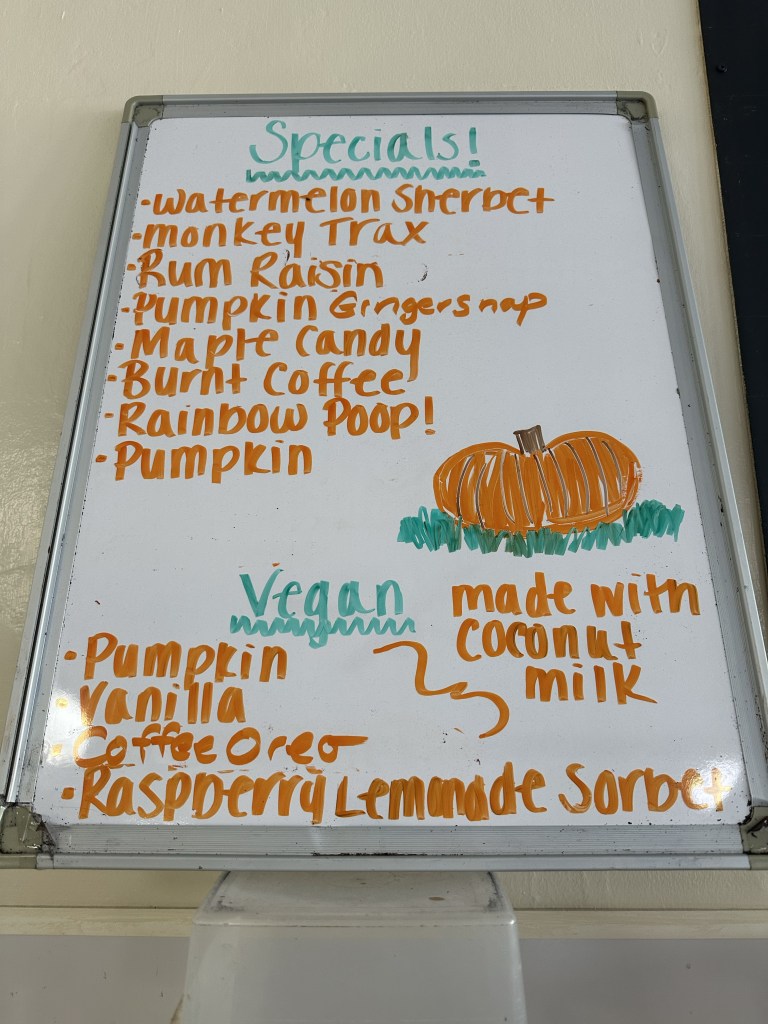 Specials!
• Watermelon Sherbet
• Monkey Trax
• Rum Raisin
• Pumpkin Gingersnap
• Maple Candy
• Burnt Coffee
• Rainbow Poop!
• Pumpkin
Vegan
made with
coconut
milk
• Pumpkin
• Vanilla
• Coffee Oreo
• Raspberry Lemonade Sorbet